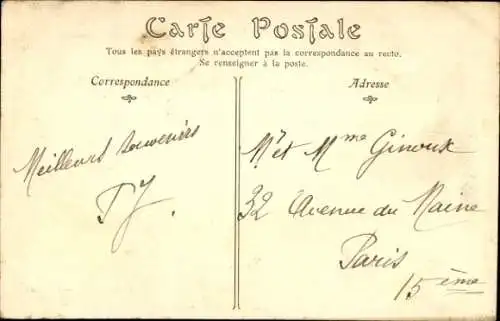 Carte Postale
Tous les pays étrangers n'acceptent pas la correspondance au recto.
Se renseigner à la poste.
Correspondance
Adresse
Meilleurs souvenirs
Mr et Mme Ginoux
32 Avenue du Maine
Paris
15ème